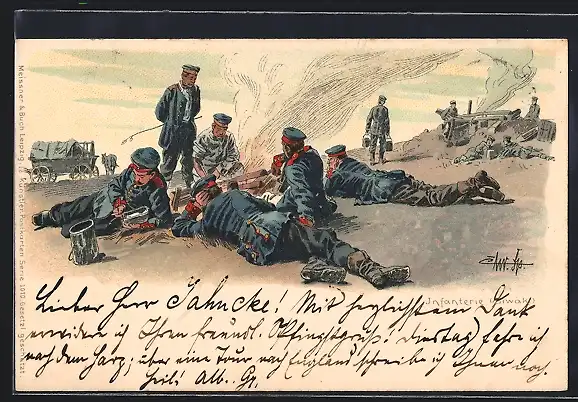 Meissner & Buch, Leipzig Künstler-Postkarten Serie 1010 Gesetzl. geschützt
Infanterie (Biwak)
Lieber Herr Jahncke! Mit herzlichstem Dank
erwidere ich Ihren freundl. Pfingstgruß! Dienstag fahre ich
nach dem Harz; über eine Tour nach England schreibe ich Ihnen noch.
Alb. Gg.